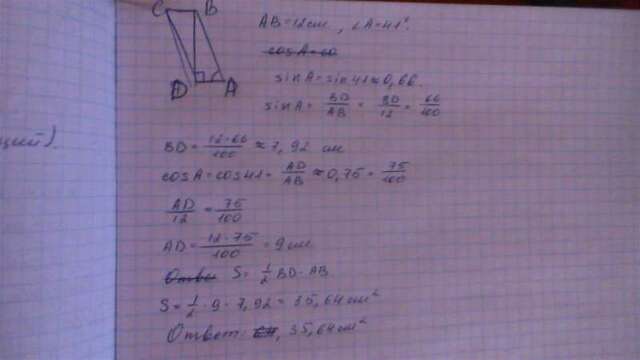 C B
D A
AB=12см, ∠A=41°.
cosA=co
sinA=sin41≈0,66.
sinA= BD/AB = BD/12 = 66/100
щий)
BD= 12·66/100 ≈ 7,92 см
cosA=cos41= AD/AB ≈0,75= 75/100
AD/12 = 75/100
AD= 12·75/100 =9см
Ответ S= 1/2 BD·AB.
S= 1/2 ·9·7,92=35,64см²
Ответ: 35,64см²